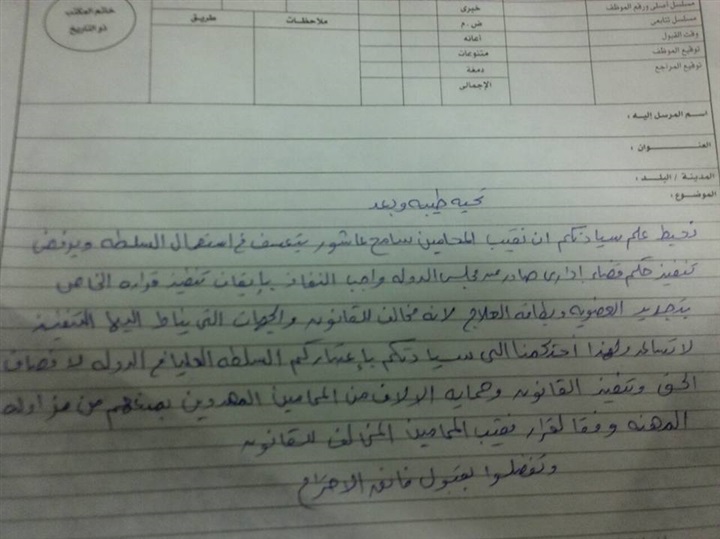 مسلسل أصلى ورقم الموظف
مسلسل تتابعى
وقت القبول
توقيع الموظف
توقيع المراجع
خبرى
ض . م
أعانه
متنوعات
دمغة
الإجمالى
ملاحظات
طريق
خاتم المكتب
ذو التاريخ
اسم المرسل اليه :
العنـــوان :
المدينة / البلد :
الموضوع :
تحيه طيبه وبعد
نحيط علم سيادتكم ان نقيب المحامين سامح عاشور يتعسف فى استعمال السلطه ويرفض
تنفيذ حكم قضاء ادارى صادر من مجلس الدوله واجب النفاذ بإيقاف تنفيذ قراره الخاص
بتجديد العضويه وبطاقه العلاج لانه مخالف للقانون والجهات التى يناط اليها التنفيذ
لا تساعد ولهذا احتكمنا الى سيادتكم بإعتباركم السلطه العليا فى الدوله لانصاف
الحق وتنفيذ القانون وحمايه الالاف من المحامين المهددين بمنعهم من مزاوله
المهنه وفقا لقرار نقيب المحامين المخالف للقانون
وتفضلوا بقبول فائق الاحترام